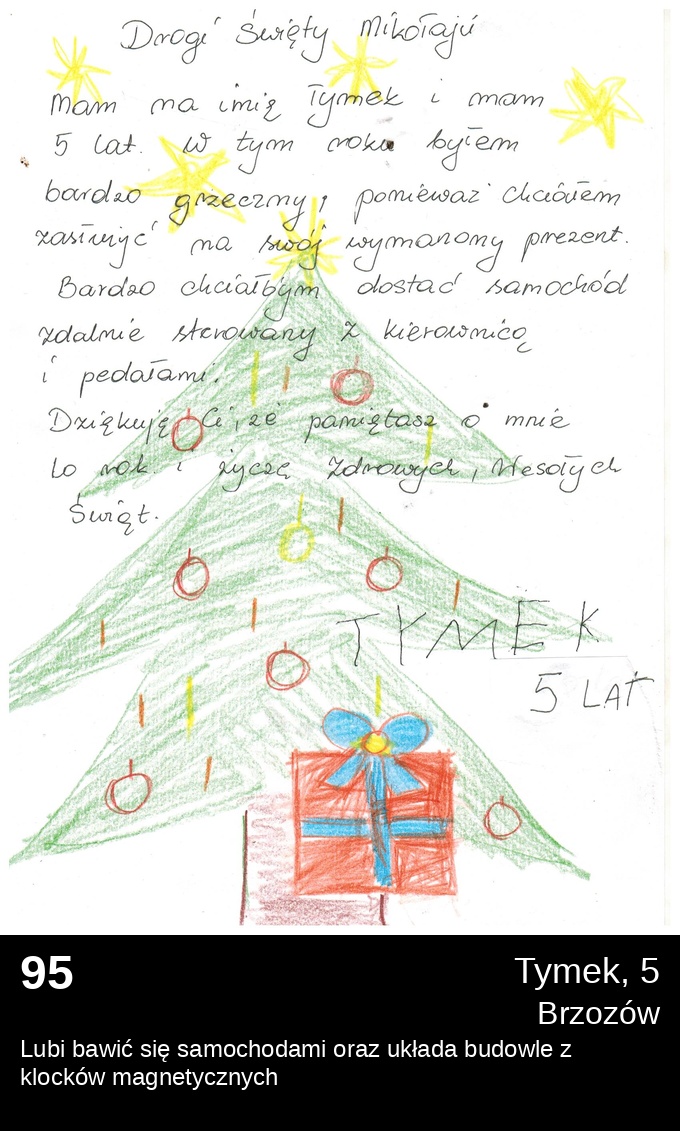 Drogi Święty Mikołaju
Mam na imię Tymek i mam
5 lat. W tym roku byłem
bardzo grzeczny, ponieważ chciałem
zasłużyć na swój wymarzony prezent.
Bardzo chciałbym dostać samochód
zdalnie sterowany z kierownicą
i pedałami.
Dziękuję Ci, że pamiętasz o mnie
co rok i życzę Zdrowych, Wesołych
Świąt.
TYMEK
5 LAT
95
Tymek, 5
Brzozów
Lubi bawić się samochodami oraz układa budowle z
klocków magnetycznych